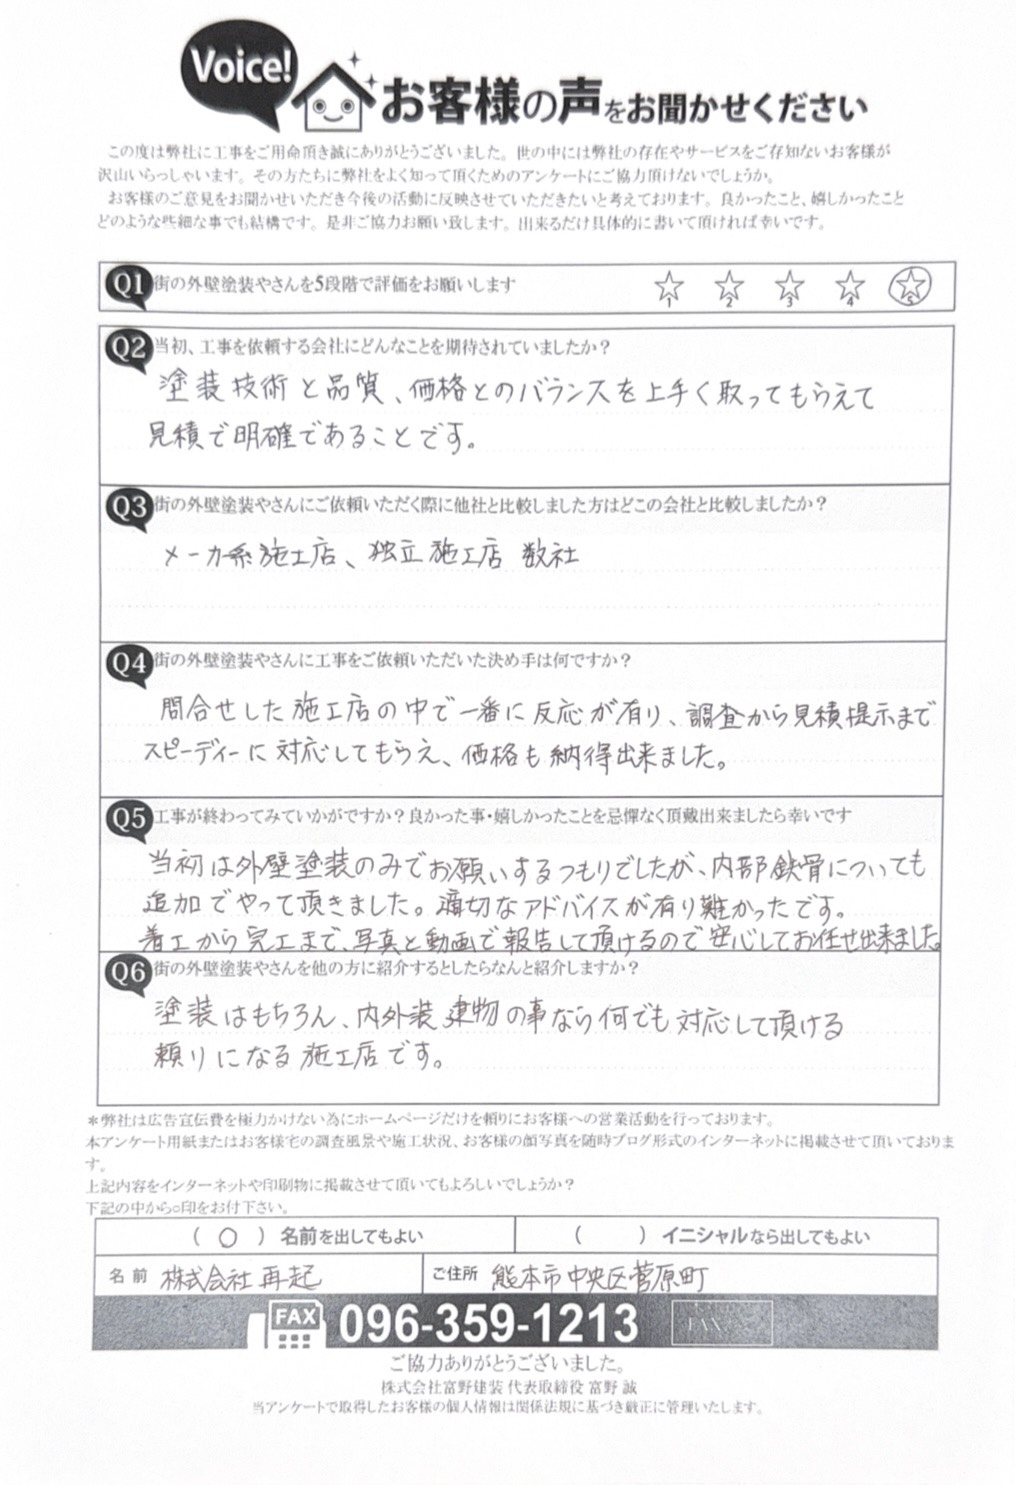 Voice!
お客様の声をお聞かせください
この度は弊社に工事をご用命頂き誠にありがとうございました。世の中には弊社の存在やサービスをご存知ないお客様が
沢山いらっしゃいます。その方たちに弊社をよく知って頂くためのアンケートにご協力頂けないでしょうか。
お客様のご意見をお聞かせいただき今後の活動に反映させていただきたいと考えております。良かったこと、嬉しかったこと
どのような些細な事でも結構です。是非ご協力お願い致します。出来るだけ具体的に書いて頂ければ幸いです。
Q1 街の外壁塗装やさんを5段階で評価をお願いします ☆1 ☆2 ☆3 ☆4 ☆5
Q2 当初、工事を依頼する会社にどんなことを期待されていましたか？
塗装技術と品質、価格とのバランスを上手く取ってもらえて
見積で明確であることです。
Q3 街の外壁塗装やさんにご依頼いただく際に他社と比較しました方はどこの会社と比較しましたか？
メーカー系施工店、独立施工店 数社
Q4 街の外壁塗装やさんに工事をご依頼いただいた決め手は何ですか？
問合せした施工店の中で一番に反応が有り、調査から見積提示まで
スピーディーに対応してもらえ、価格も納得出来ました。
Q5 工事が終わってみていかがですか？良かった事・嬉しかったことを忌憚なく頂戴出来ましたら幸いです
当初は外壁塗装のみでお願いするつもりでしたが、内部鉄骨についても
追加でやって頂きました。適切なアドバイスが有り難かったです。
着工から完工まで、写真と動画で報告して頂けるので安心してお任せ出来ました。
Q6 街の外壁塗装やさんを他の方に紹介するとしたらなんと紹介しますか？
塗装はもちろん、内外装建物の事なら何でも対応して頂ける
頼りになる施工店です。
＊弊社は広告宣伝費を極力かけない為にホームページだけを頼りにお客様への営業活動を行っております。
本アンケート用紙またはお客様宅の調査風景や施工状況、お客様の顔写真を随時ブログ形式のインターネットに掲載させて頂いておりま
す。
上記内容をインターネットや印刷物に掲載させて頂いてもよろしいでしょうか？
下記の中から○印をお付下さい。
（ ○ ）名前を出してもよい （ ）イニシャルなら出してもよい
名前 株式会社再起 ご住所 熊本市中央区菅原町
FAX 096-359-1213 FAX
ご協力ありがとうございました。
株式会社富野建装 代表取締役 富野 誠
当アンケートで取得したお客様の個人情報は関係法規に基づき厳正に管理いたします。